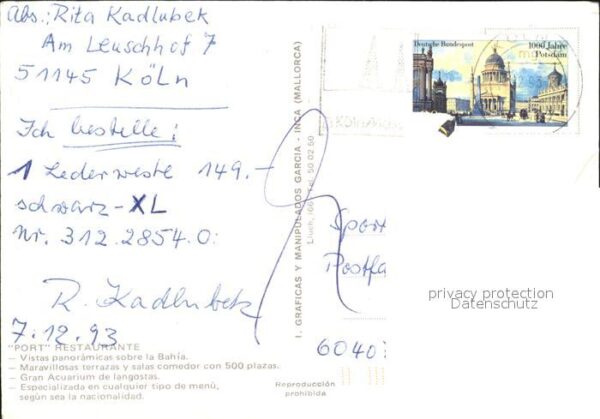 Abs.: Rita Kadlubek
Am Leuschhof 7
51145 KÖLN
Ich bestelle:
1 Lederweste 149.-
schwarz-XL
Nr. 312.2854.0:
R. Kadlubek
7.12.93
"PORT" RESTAURANTE
— Vistas panorámicas sobre la Bahía.
— Maravillosas terrazas y salas comedor con 500 plazas.
— Gran Acuarium de langostas.
— Especializada en cualquier tipo de menú,
según sea la nacionalidad.
I. GRAFICAS Y MANIPULADOS GARCIA - INCA (MALLORCA)
Reproducción
prohibida
Deutsche Bundespost
1000 Jahre
Potsdam
Sport
Postfa
6040
privacy protection
Datenschutz